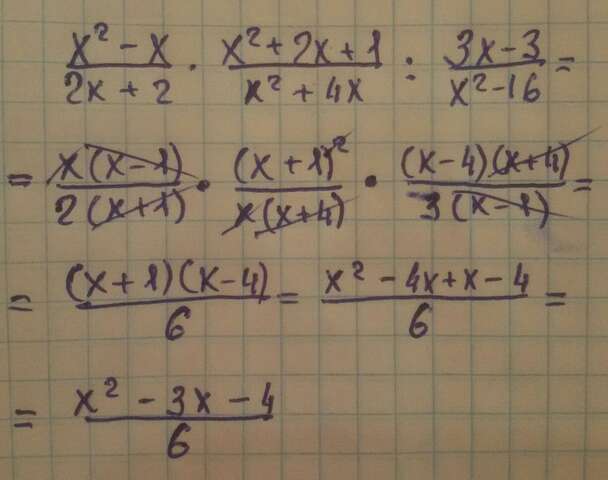 (x² - x)/(2x + 2) · (x² + 2x + 1)/(x² + 4x) : (3x - 3)/(x² - 16) =
= x(x - 1)/2(x + 1) · (x + 1)²/x(x + 4) · (x - 4)(x + 4)/3(x - 1) =
= (x + 1)(x - 4)/6 = (x² - 4x + x - 4)/6 =
= (x² - 3x - 4)/6